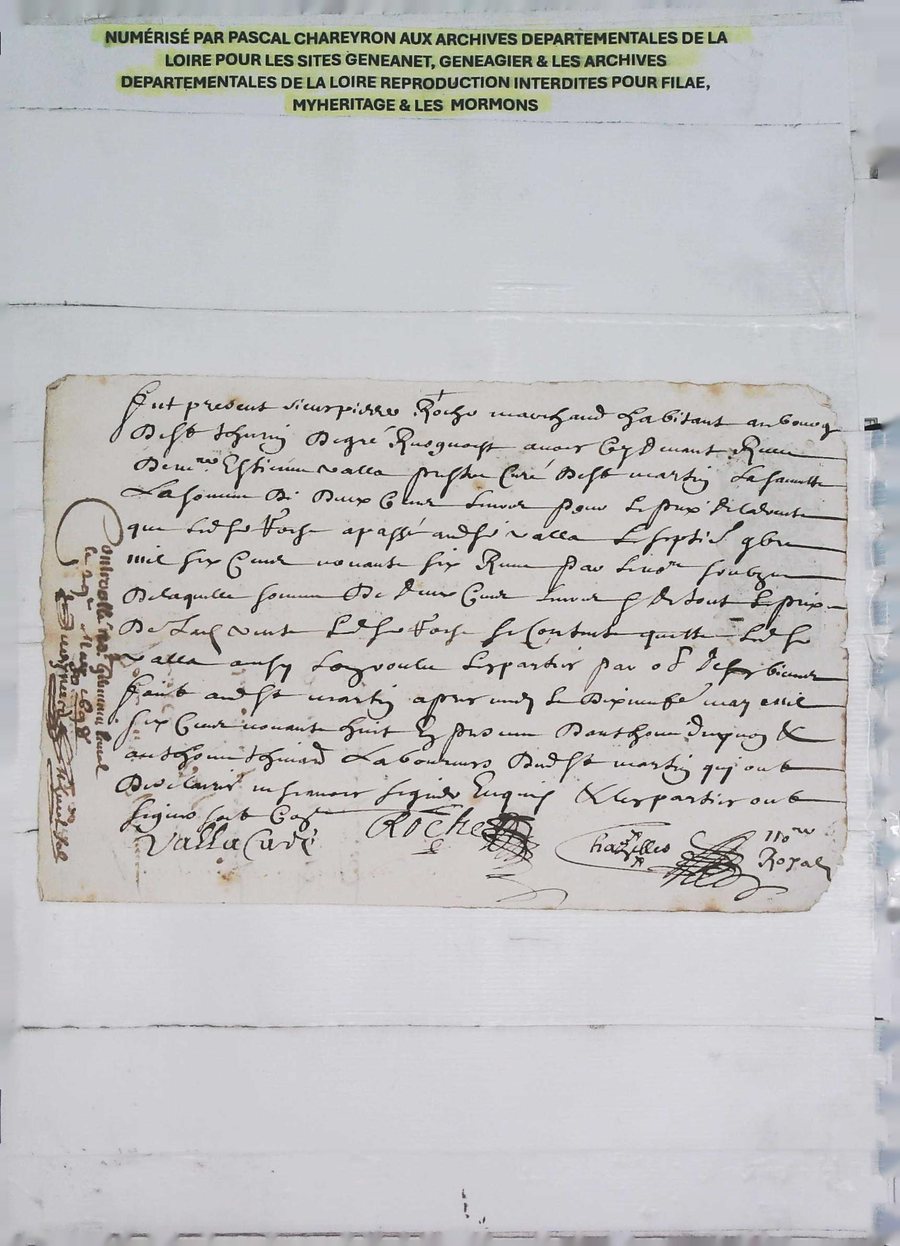 NUMÉRISÉ PAR PASCAL CHAREYRON AUX ARCHIVES DEPARTEMENTALES DE LA
LOIRE POUR LES SITES GENEANET, GENEAGIER & LES ARCHIVES
DEPARTEMENTALES DE LA LOIRE REPRODUCTION INTERDITES POUR FILAE,
MYHERITAGE & LES MORMONS
fut present sieur pierre Roche marchand habitant au bourg
De st thurin De gré avoir Cy Devant
De mre Estienne valla prestre Curé De st martin La sauveté
La somme De Deux Cent Livres pour Le prix De la vente
que Led sr Roche a passé aud sr valla Le septie 9bre
mil six Cent nonante six par Le nore soubzne
De laquelle somme De Deux Cent Livres & De tout Le prix
De Lad vente Led sr Roche se Contente quitte Led sr
valla ainsy Lont voulu Les parties par
fait aud st martin apres midy Le may mil
six Cent nonante huit En presence D'anthoine &
anthoine Laboureurs Dud st martin qui ont
Declairé ne sçavoir signer Enquis & Les parties ont
signé
Valla Curé
Roche
Chazelles
nore
Royal
Controllé
Le may 1698